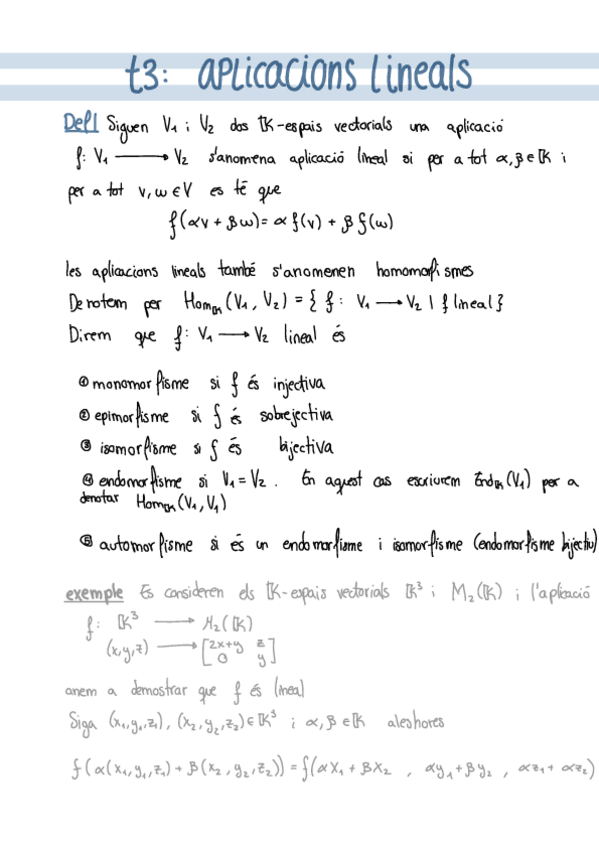 t3: APLICACIONS LINEALS
Def| Siguen V₁ i V₂ dos K-espais vectorials una aplicació
f: V₁ ⟶ V₂ s'anomena aplicació lineal si per a tot α,β∈K i
per a tot v,w∈V es té que
f(αv + βw) = α f(v) + β f(w)
les aplicacions lineals també s'anomenen homomorfismes
Denotem per Hom_K(V₁, V₂) = { f: V₁ ⟶ V₂ | f lineal }
Direm que f: V₁ ⟶ V₂ lineal és
① monomorfisme si f és injectiva
② epimorfisme si f és sobrejectiva
③ isomorfisme si f és bijectiva
④ endomorfisme si V₁ = V₂. En aquest cas escriurem End_K(V₁) per a
denotar Hom_K(V₁,V₁)
⑤ automorfisme si és un endomorfisme i isomorfisme (endomorfisme bijectiu)
exemple Es consideren els K-espais vectorials K³ i M₂(K) i l'aplicació
f: K³ ⟶ M₂(K)
(x,y,z) ⟶ [2x+y z
0 y]
anem a demostrar que f és lineal
Siga (x₁,y₁,z₁), (x₂,y₂,z₂)∈K³ i α,β∈K aleshores
f(α(x₁,y₁,z₁) + β(x₂,y₂,z₂)) = f(αx₁ + βx₂ , αy₁+βy₂ , αz₁+ αz₂)